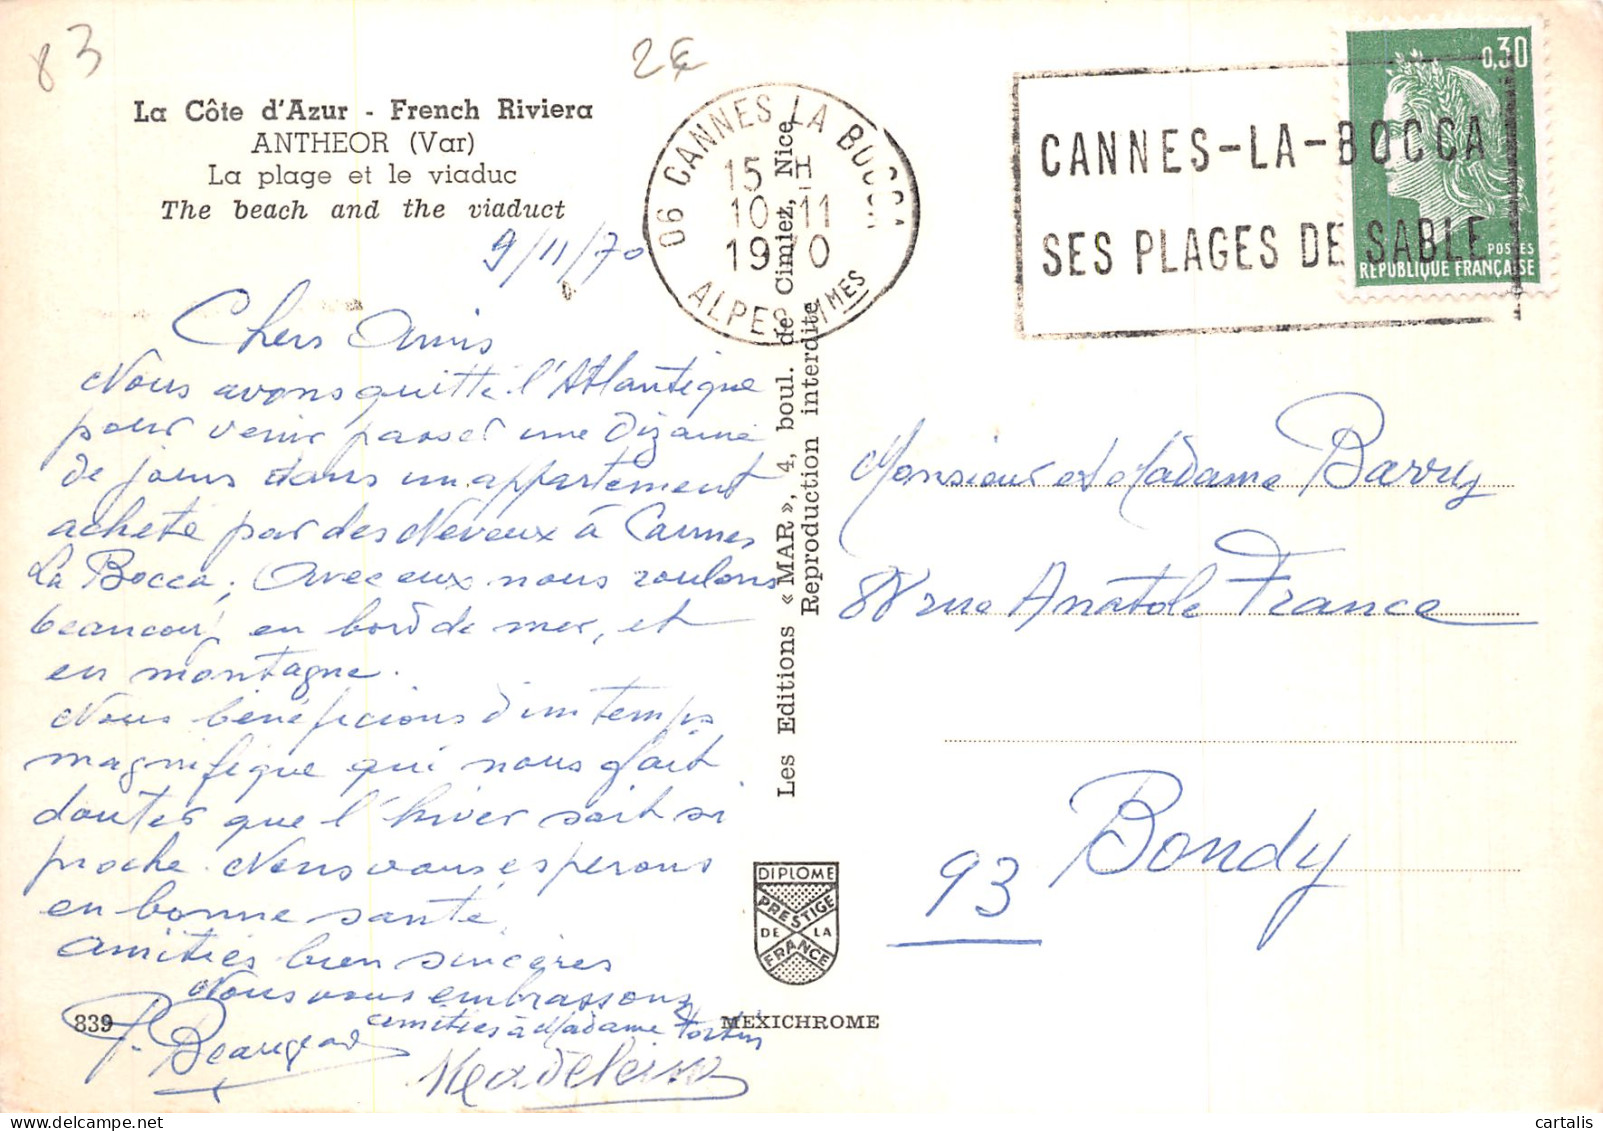 83
2€
La Côte d'Azur - French Riviera
ANTHEOR (Var)
La plage et le viaduc
The beach and the viaduct
9/11/70
Chers Amis
Nous avons quitté l'Atlantique
pour venir passer une dizaine
de jours dans un appartement
acheté par des Neveux à Cannes
La Bocca; Avec eux nous roulons
beaucoup en bord de mer, et
en montagne.
Nous bénéficions d'un temps
magnifique qui nous fait
douter que l'hiver soit si
proche. Nous vous esperons
en bonne santé.
Amitiés bien sincères
Nous vous embrassons
amitiés à Madame
Madeleine
839
Les Editions « MAR », 4, boul. de Cimiez, Nice
Reproduction interdite
DIPLOME
PRESTIGE
DE LA
FRANCE
MEXICHROME
06 CANNES LA BOCCA
15 H
10-11
1970
ALPES MMES
CANNES-LA-BOCCA
SES PLAGES DE SABLE
0,30
POSTES
REPUBLIQUE FRANÇAISE
Monsieur et Madame Barry
88 rue Anatole France
93 Bondy
cartalis on Delcampe.net